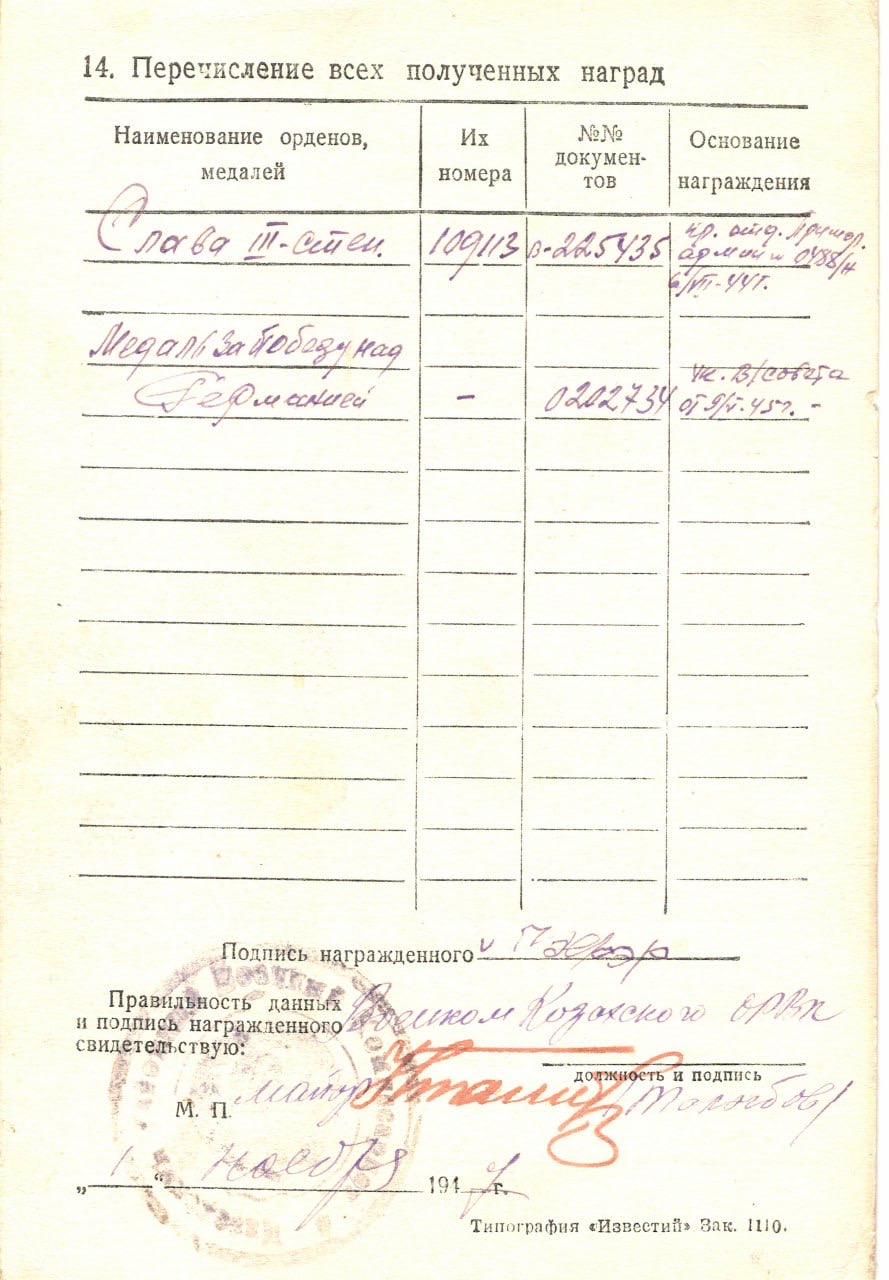 14. Перечисление всех полученных наград
Наименование орденов, медалей
Их номера
№№ документов
Основание награждения
Слава III-степ. 109113 в-225435 пр. отд. Примор. армии № 0488/н
6/VII-44г.
Медаль За победу над
Германией - 0202734 ук. В/совета
от 9/V-45г. -
Подпись награжденного
Правильность данных
и подпись награжденного
свидетельствую:
Военком Казахского ОРВК
должность и подпись
М. П.
майор
„ 1 “ ноября 1947 г.
Типография «Известий» Зак. 1110.